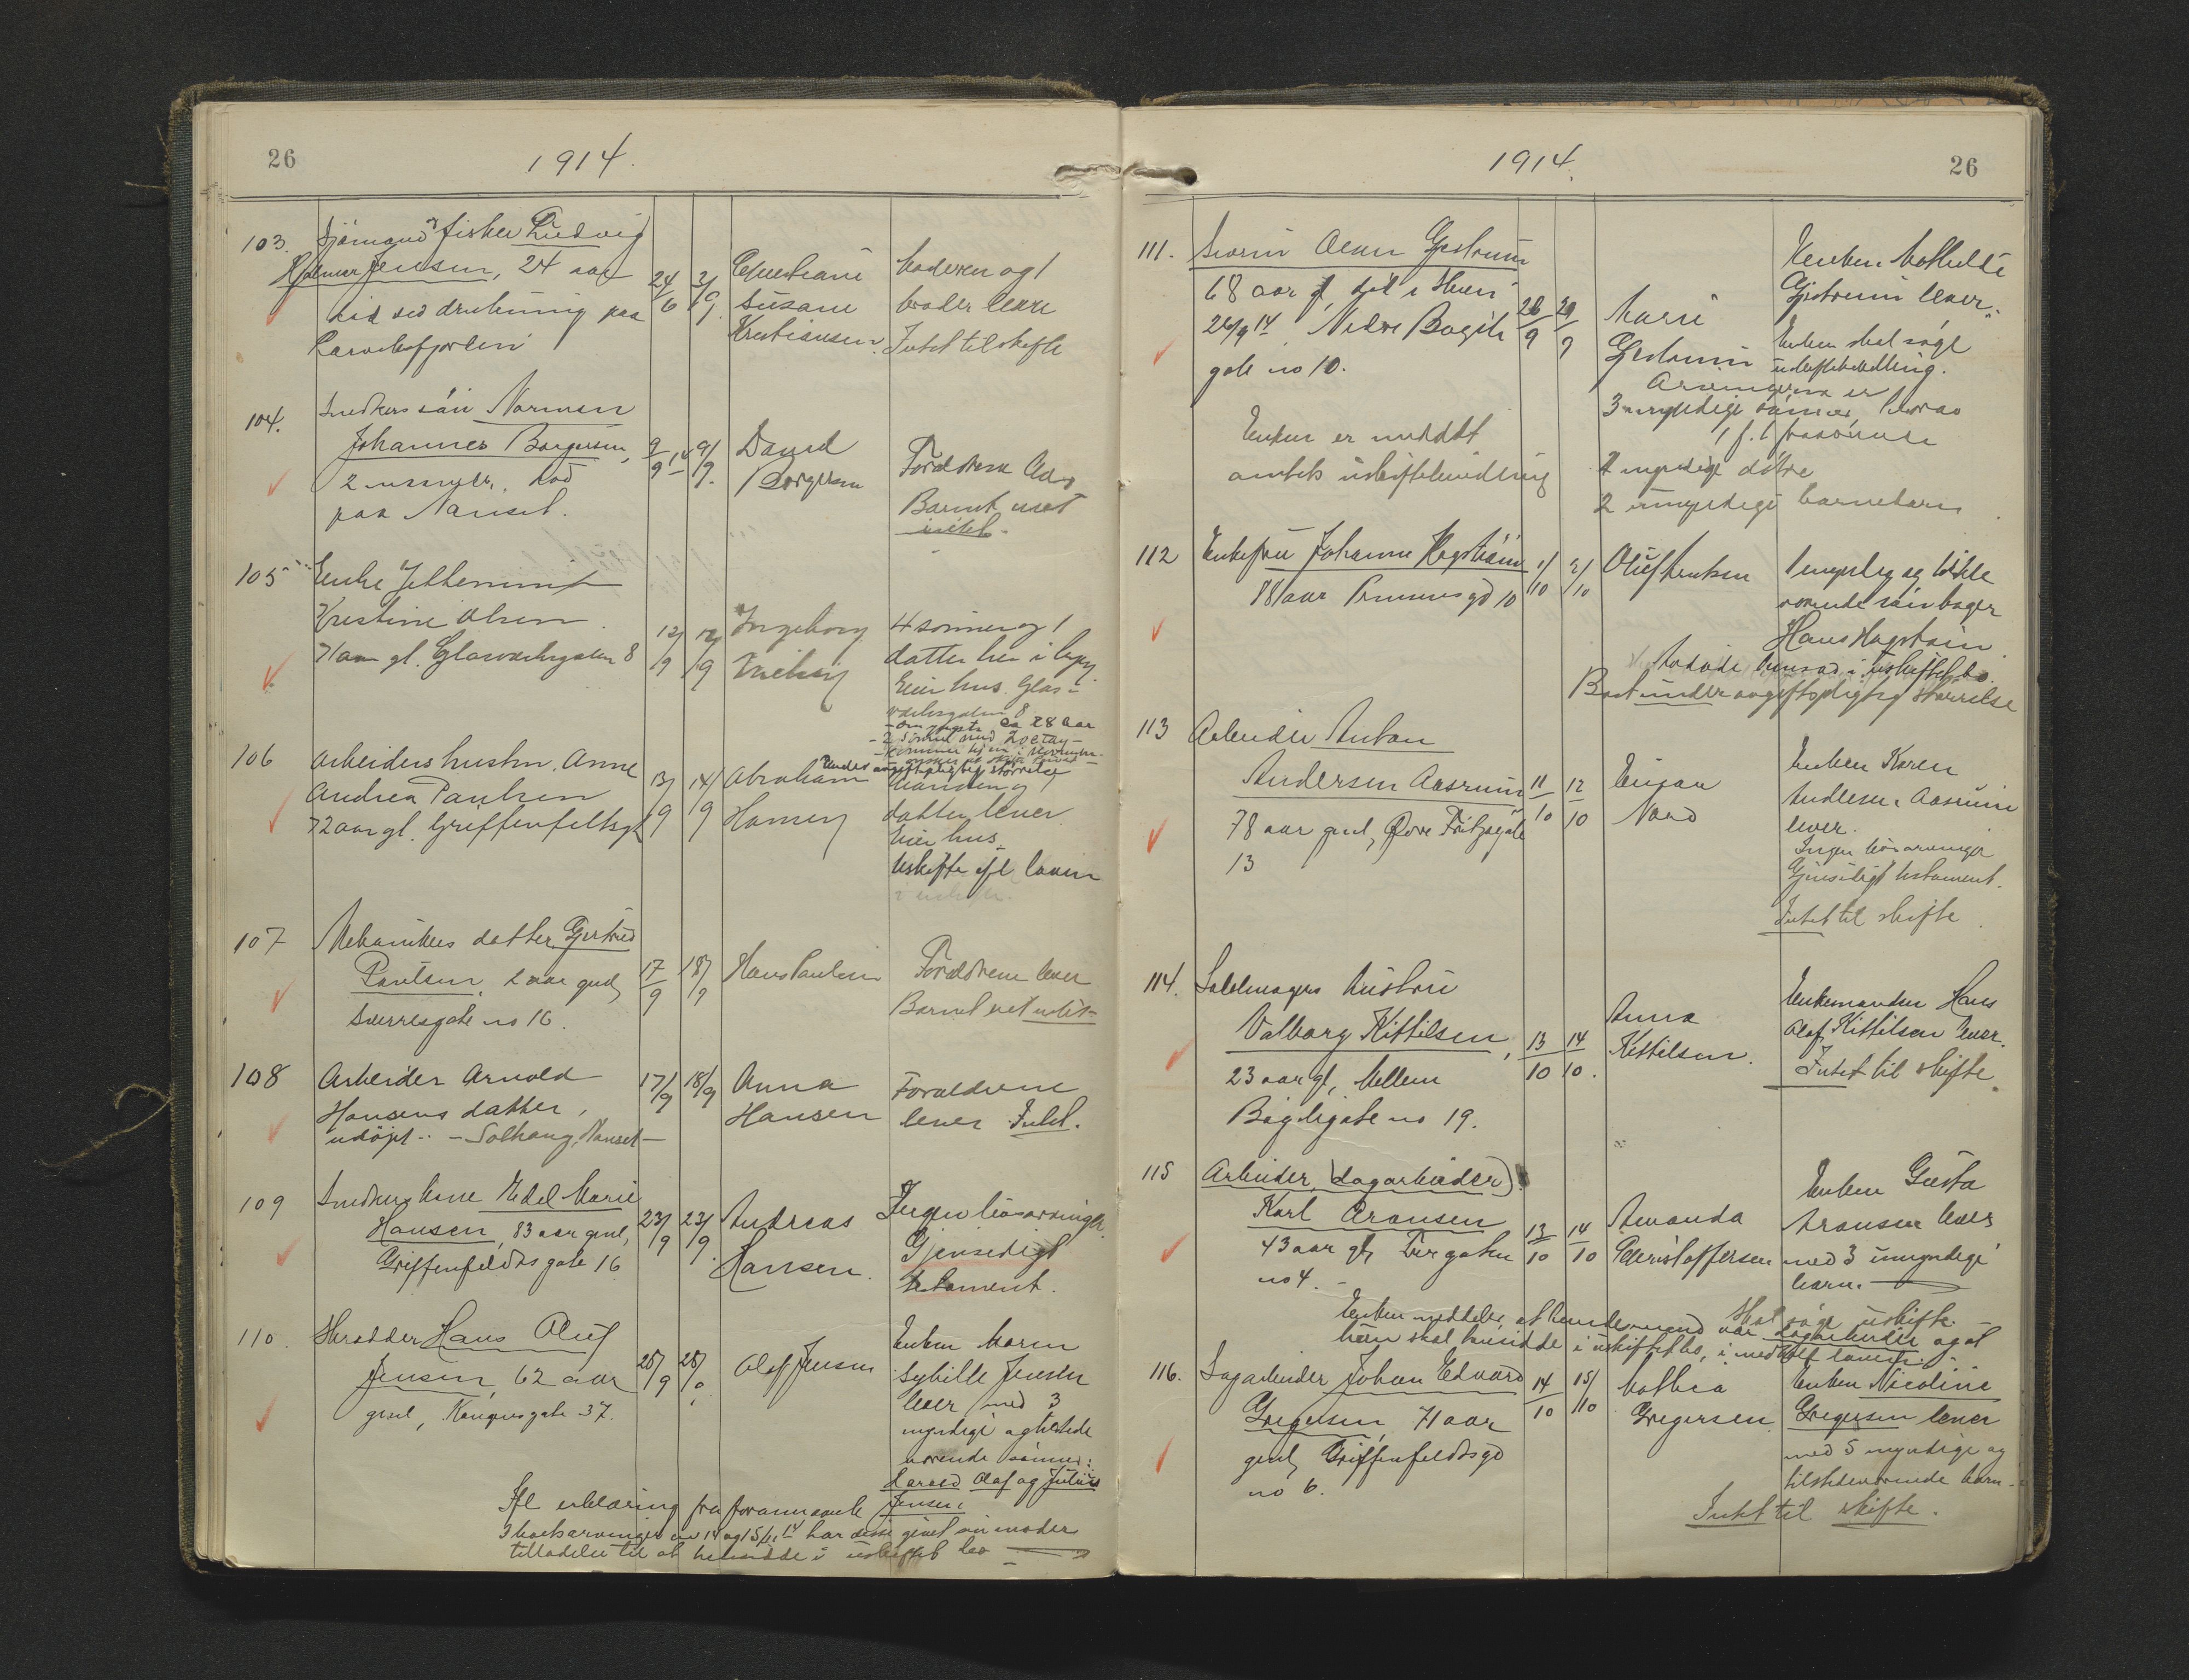 26
1914.
103. Sjömand & fisker Ludvig
Hjalmar Jensen, 24 aar
död ved drukning paa
Larviksfjorden
24/6 3/9.
Susane
Kristiansen.
Moderen og 1
broder lever
Intet til skifte
104. Snedkers sön Normen
Johannes Borgersen,
2 maaneder, död
paa Nanset.
9/9 14 9/9.
David
Borgersen
Forældrene lever
Barnet eiet
intet.
105 Enke
Kristine Olsen
71 aar gl. Glasværksgaten 8
12/9 12/9
Ingeborg
4 sönner og 1
datter her i byen
Eier hus Glas-
værksgaten 8
ca 28 aar
106 Arbeiders hustru Anne
Andrea Paulsen
72 aar gl. Griffenfeldtsgt
13/9 14/9
Abraham
Hansen
Under avgiftspligtig størrelse
Manden og 1
datter lever
Eier hus
Uskifte efl loven
107 Mekanikers datter Gertrud
Paulsen, 2 aar gml,
Sverresgate no 16.
17/9 18/9
Hans Paulsen
Forældrene lever
Barnet eiet intet
108 Arbeider Arnold
Hansens datter,
udöpt - Solhaug, Nanset -
17/9 18/9
Anna
Hansen
Forældrene
lever Intet.
109 Snedkers kone Edel Marie
Hansen, 83 aar gml,
Griffenfeldts gate 16
23/9 23/9.
Andreas
Hansen.
Ingen livsarvinger.
Gjensidigt
testament.
110. Skrædder Hans Oluf
Jensen, 62 aar
gml, Kongensgate 37.
25/9 25/9
Olaf Jensen
Enken Maren
Sybille Jensen
lever med 3
myndige og tilstede
værende sönner:
Harald Olaf og Julius
Jensen:
Ifl erklæring fra forannævnte
3 livsarvinger av 14 og 15/11 14 har disse givet sin moder
tilladelse til at hensidde i uskiftet bo
26
1914.
111. Gjestrum
68 aar gl, död i Skien
26/9 14 Nedre Bøgeli
gate no 10.
26/9 29/9
Marie
Gjestrum
Enken Mathilde
Gjestrum lever.
Enken skal søge
uskiftebevilling.
Arvingerne er
3 myndige sönner, hvorav
1 f. t. fraværende
2 myndige døtre
2 umyndige barnebarn
Enken er meddelt
amtets uskiftebevilling
112 Enkefru Johanne Hagstrøm
78 aar
1/10 2/10
Oluf
1 myndig og tilstede
værende sön bager
Hans Hagstrøm.
i uskiftet bo.
Boet under avgiftspligtig størrelse
113 Arbeider Anton
Andersen Aasrum
78 aar gml, Øvre Fritzøegate
13
11/10 12/10
Einar
Nord
Enken Karen
Andersen Aasrum
lever.
Ingen livsarvinger
Gjensidigt testament.
Intet til skifte.
114. Sadelmagers hustru
Valborg Kittilsen,
23 aar gl, Mellem
Bøgeligate no 19.
13/10 14/10.
Anna
Kittilsen.
Enkemanden Hans
Olaf Kittilsen lever.
Intet til skifte.
115 Arbeider, (dagarbeider)
Karl Aronsen
43 aar gl, Torgaten
no 4. -
13/10 14/10
Amanda
Kristoffersen
Enken Gusta
Aronsen lever
med 3 umyndige
barn.
Skal søge uskifte. -
Enken meddeler, at hendes mand var dagarbeider og at
hun skal hensidde i uskiftet bo, i medhold loven. -
116. Dagarbeider Johan Edvard
Gregersen, 71 aar
gml, Griffenfeldtsgd
no 6.
14/10 15/10
Mathea
Gregersen
Enken Nicoline
Gregersen lever
med 5 myndige og
tilstedeværende barn.
Intet til skifte.